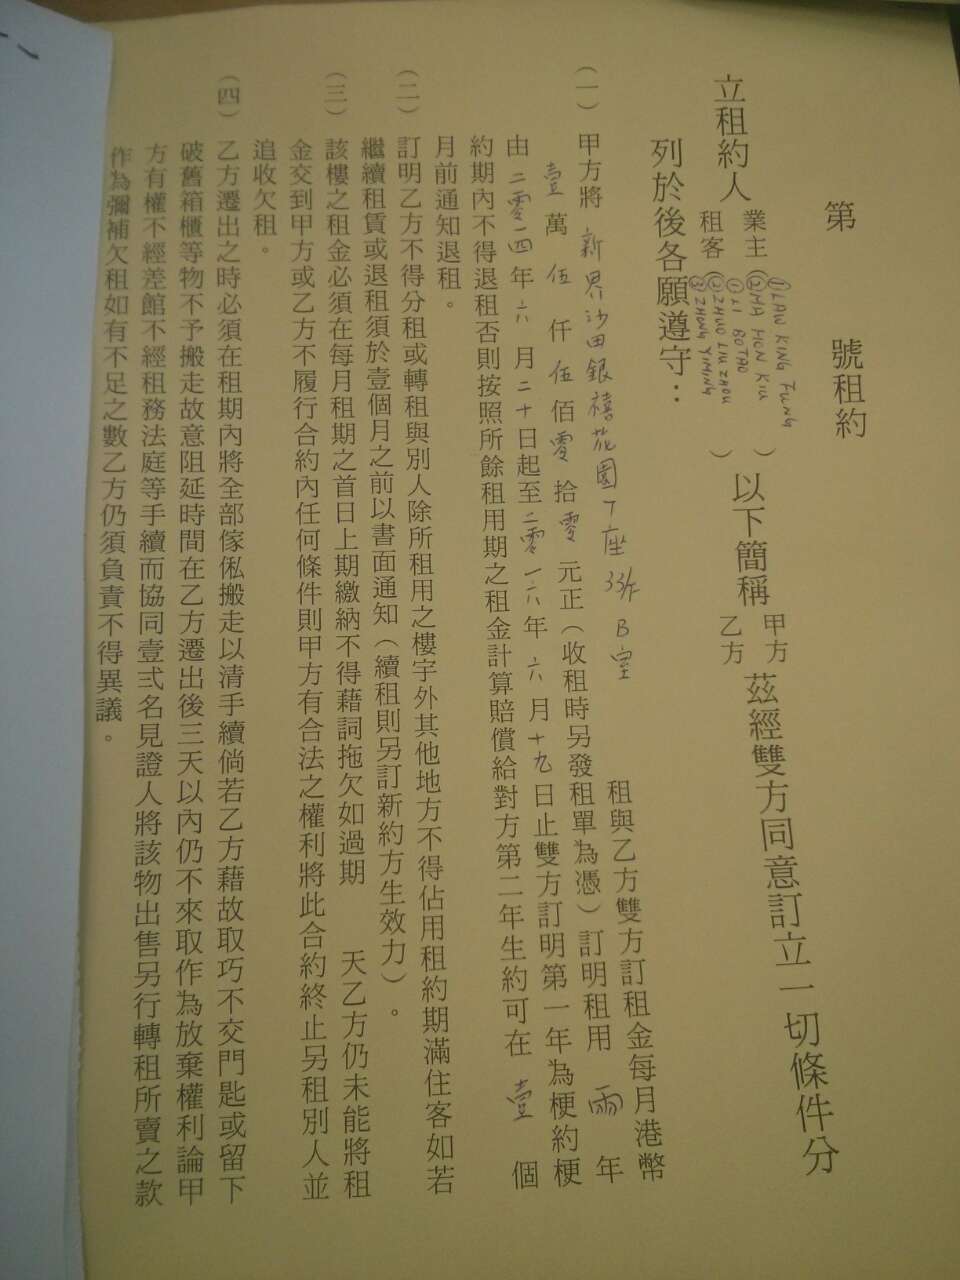 第　號租約
立租約人 業主 (①LAW KING FUNG ②MA HON KIU) 租客 (①LI BOTAO ②ZHUO LIU ZHOU ③ZHONG YIMING) 以下簡稱 甲方 乙方 茲經雙方同意訂立一切條件分
列於後各願遵守：
(一) 甲方將 新界沙田銀禧花園7座33/F B室 租與乙方雙方訂租金每月港幣
壹萬伍仟伍佰零拾零元正（收租時另發租單為憑）訂明租用 兩 年
由二零一四年六月二十日起至二零一六年六月十九日止雙方訂明第一年為梗約梗
約期內不得退租否則按照所餘租用期之租金計算賠償給對方第二年生約可在 壹 個
月前通知退租。
(二) 訂明乙方不得分租或轉租與別人除所租用之樓宇外其他地方不得佔用租約期滿住客如若
繼續租賃或退租須於壹個月之前以書面通知（續租則另訂新約方生效力）。
(三) 該樓之租金必須在每月租期之首日上期繳納不得藉詞拖欠如過期　天乙方仍未能將租
金交到甲方或乙方不履行合約內任何條件則甲方有合法之權利將此合約終止另租別人並
追收欠租。
(四) 乙方遷出之時必須在租期內將全部傢俬搬走以清手續倘若乙方藉故取巧不交門匙或留下
破舊箱櫃等物不予搬走故意阻延時間在乙方遷出後三天以內仍不來取作為放棄權利論甲
方有權不經差館不經租務法庭等手續而協同壹弍名見證人將該物出售另行轉租所賣之款
作為彌補欠租如有不足之數乙方仍須負責不得異議。